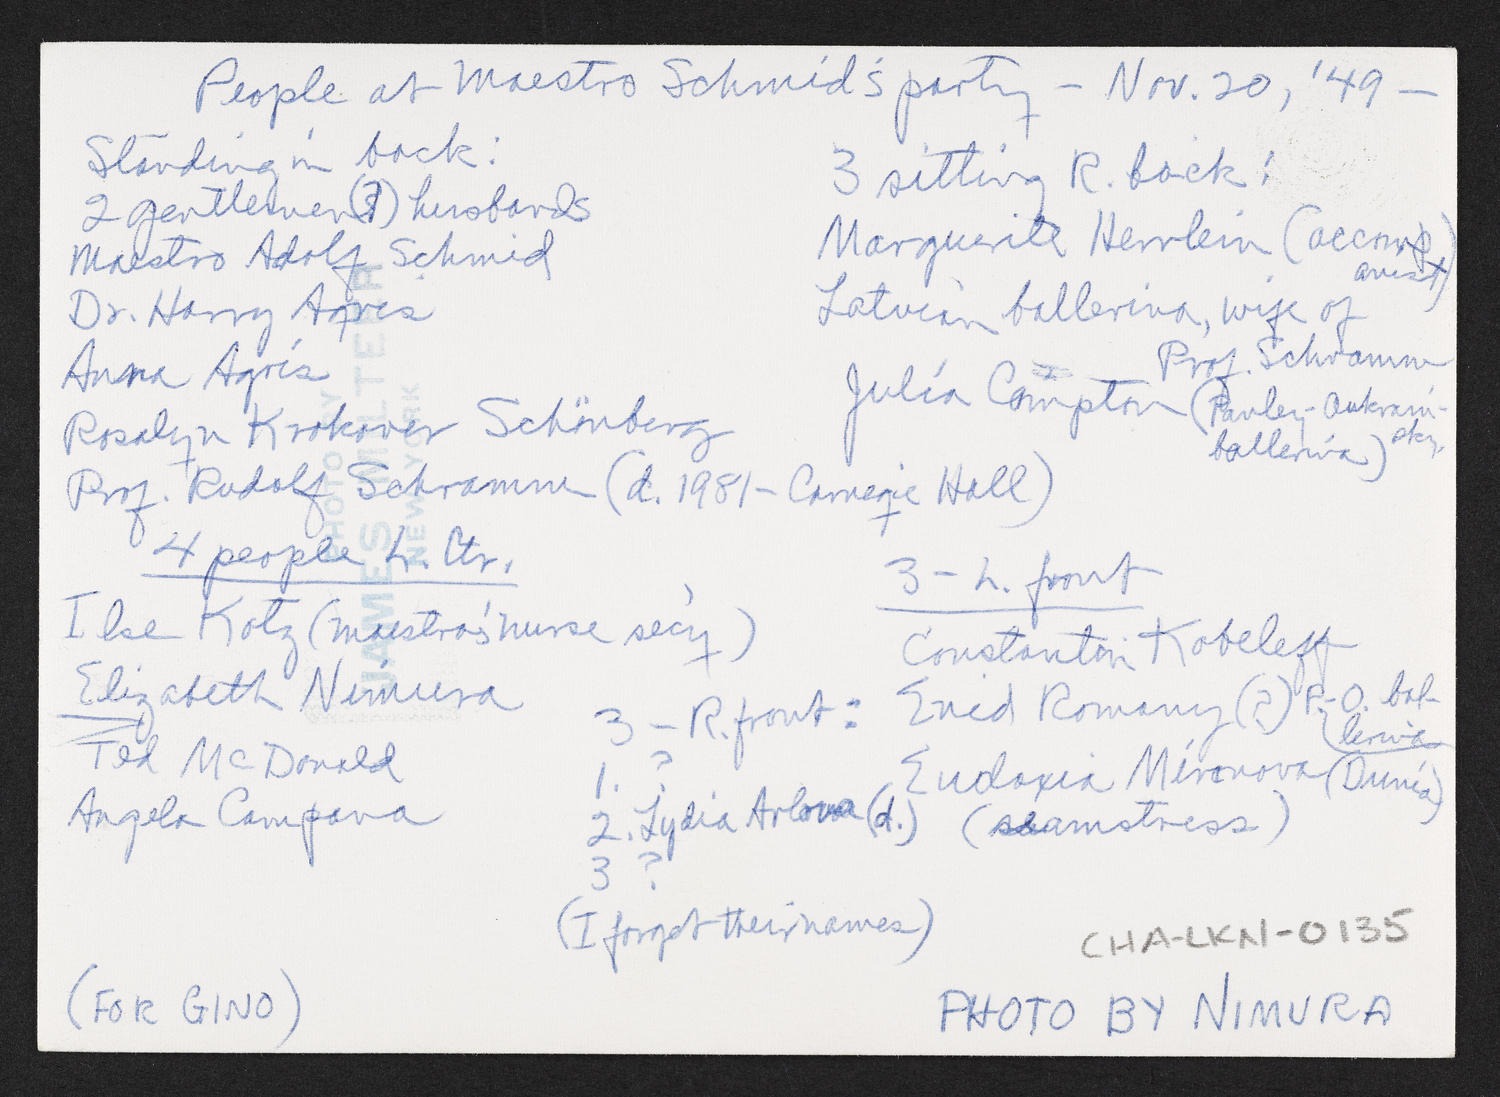 People at Maestro Schmid's party – Nov. 20, '49 –
Standing in back:
2 gentlemen (?) husbands
Maestro Adolf Schmid
Dr. Harry Agris
Anna Agris
Rosalyn Krokover Schönberg
Prof. Rudolf Schramm (d. 1981 – Carnegie Hall)
4 people L. Ctr.
Ilse Kotz (maestro's nurse sec'y)
Elizabeth Nimura
Ted McDonald
Angela Campana
3 sitting R. back:
Marguerite Herrlein (accomp
anist)
Latvian ballerina, wife of
Prof. Schramm
Julia Compton (Pavley-Oukrain-
sky
ballerina)
3 – L. front
Constantin Kobeleff
Enid Romany (?) P.-O. bal-
lerina
Eudoxia Mironova (Dunia)
(seamstress)
3 – R. front:
1. ?
2. Lydia Arlova (d.)
3 ?
(I forget their names)
CHA-LKN-0135
(FOR GINO)
PHOTO BY NIMURA
PHOTO BY
JAMES MILTER
NEW YORK